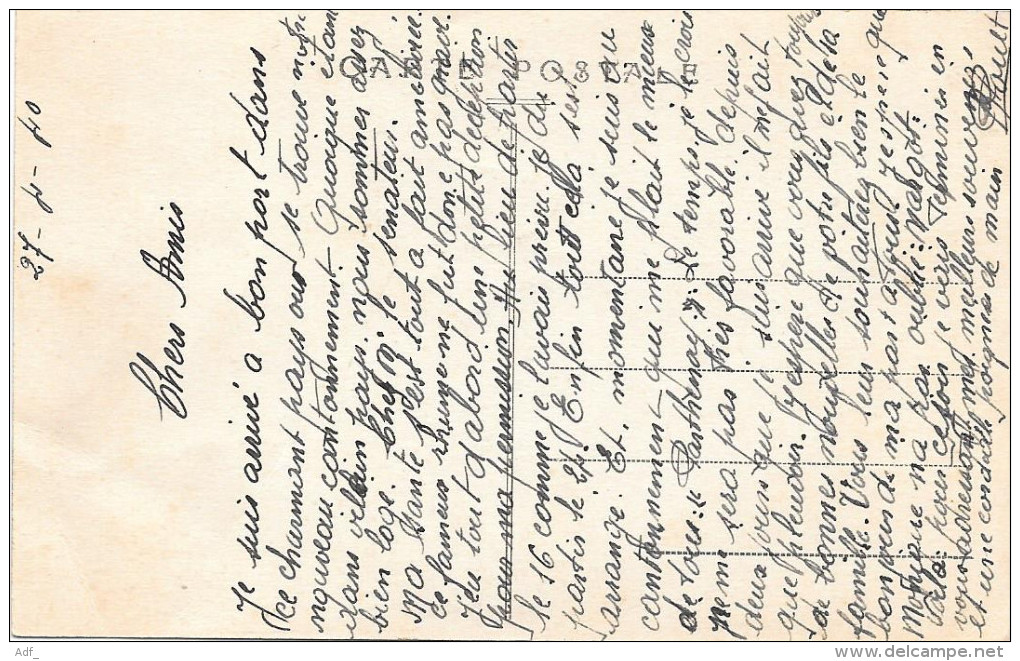 27-4-40
Chers Amis
Je suis arrivé à bon port dans
ce charmant pays ou se trouve notre
nouveau cantonnement. Quoique étant
dans vilain pays, nous sommes assez
bien logé. Chez le senateur.
Ma santé s'est tout a fait ameliorée.
ce fameux rhume ne fut donc pas grave.
J'eu tout d'abord une petite deception
pour ma permission. Au lieu de partir
le 16 comme je l'avais prévu. je du
partir le 24. Enfin tout cela s'est
arrangé. Et momentané je suis au
cantonnement qui me plait le mieux
de tous: "Parthenay". Le temps, je le crois
ne me sera pas très favorable. depuis
deux jours que je suis arrivé il ne fait
que pleuvoir. J'espère que vous avez toujours
de bonnes nouvelles de votre fils et de sa
famille. Vous leurs souhaiterez bien le
bonjour de ma part a tous. J'espère que
Monique n'a pas oublié: Margot.
Voila pour cette fois je vais terminer en
vous adressant mes meilleurs souvenirs
et une cordiale poignée de main
CARTE POSTALE
Adf_
delcampe.net